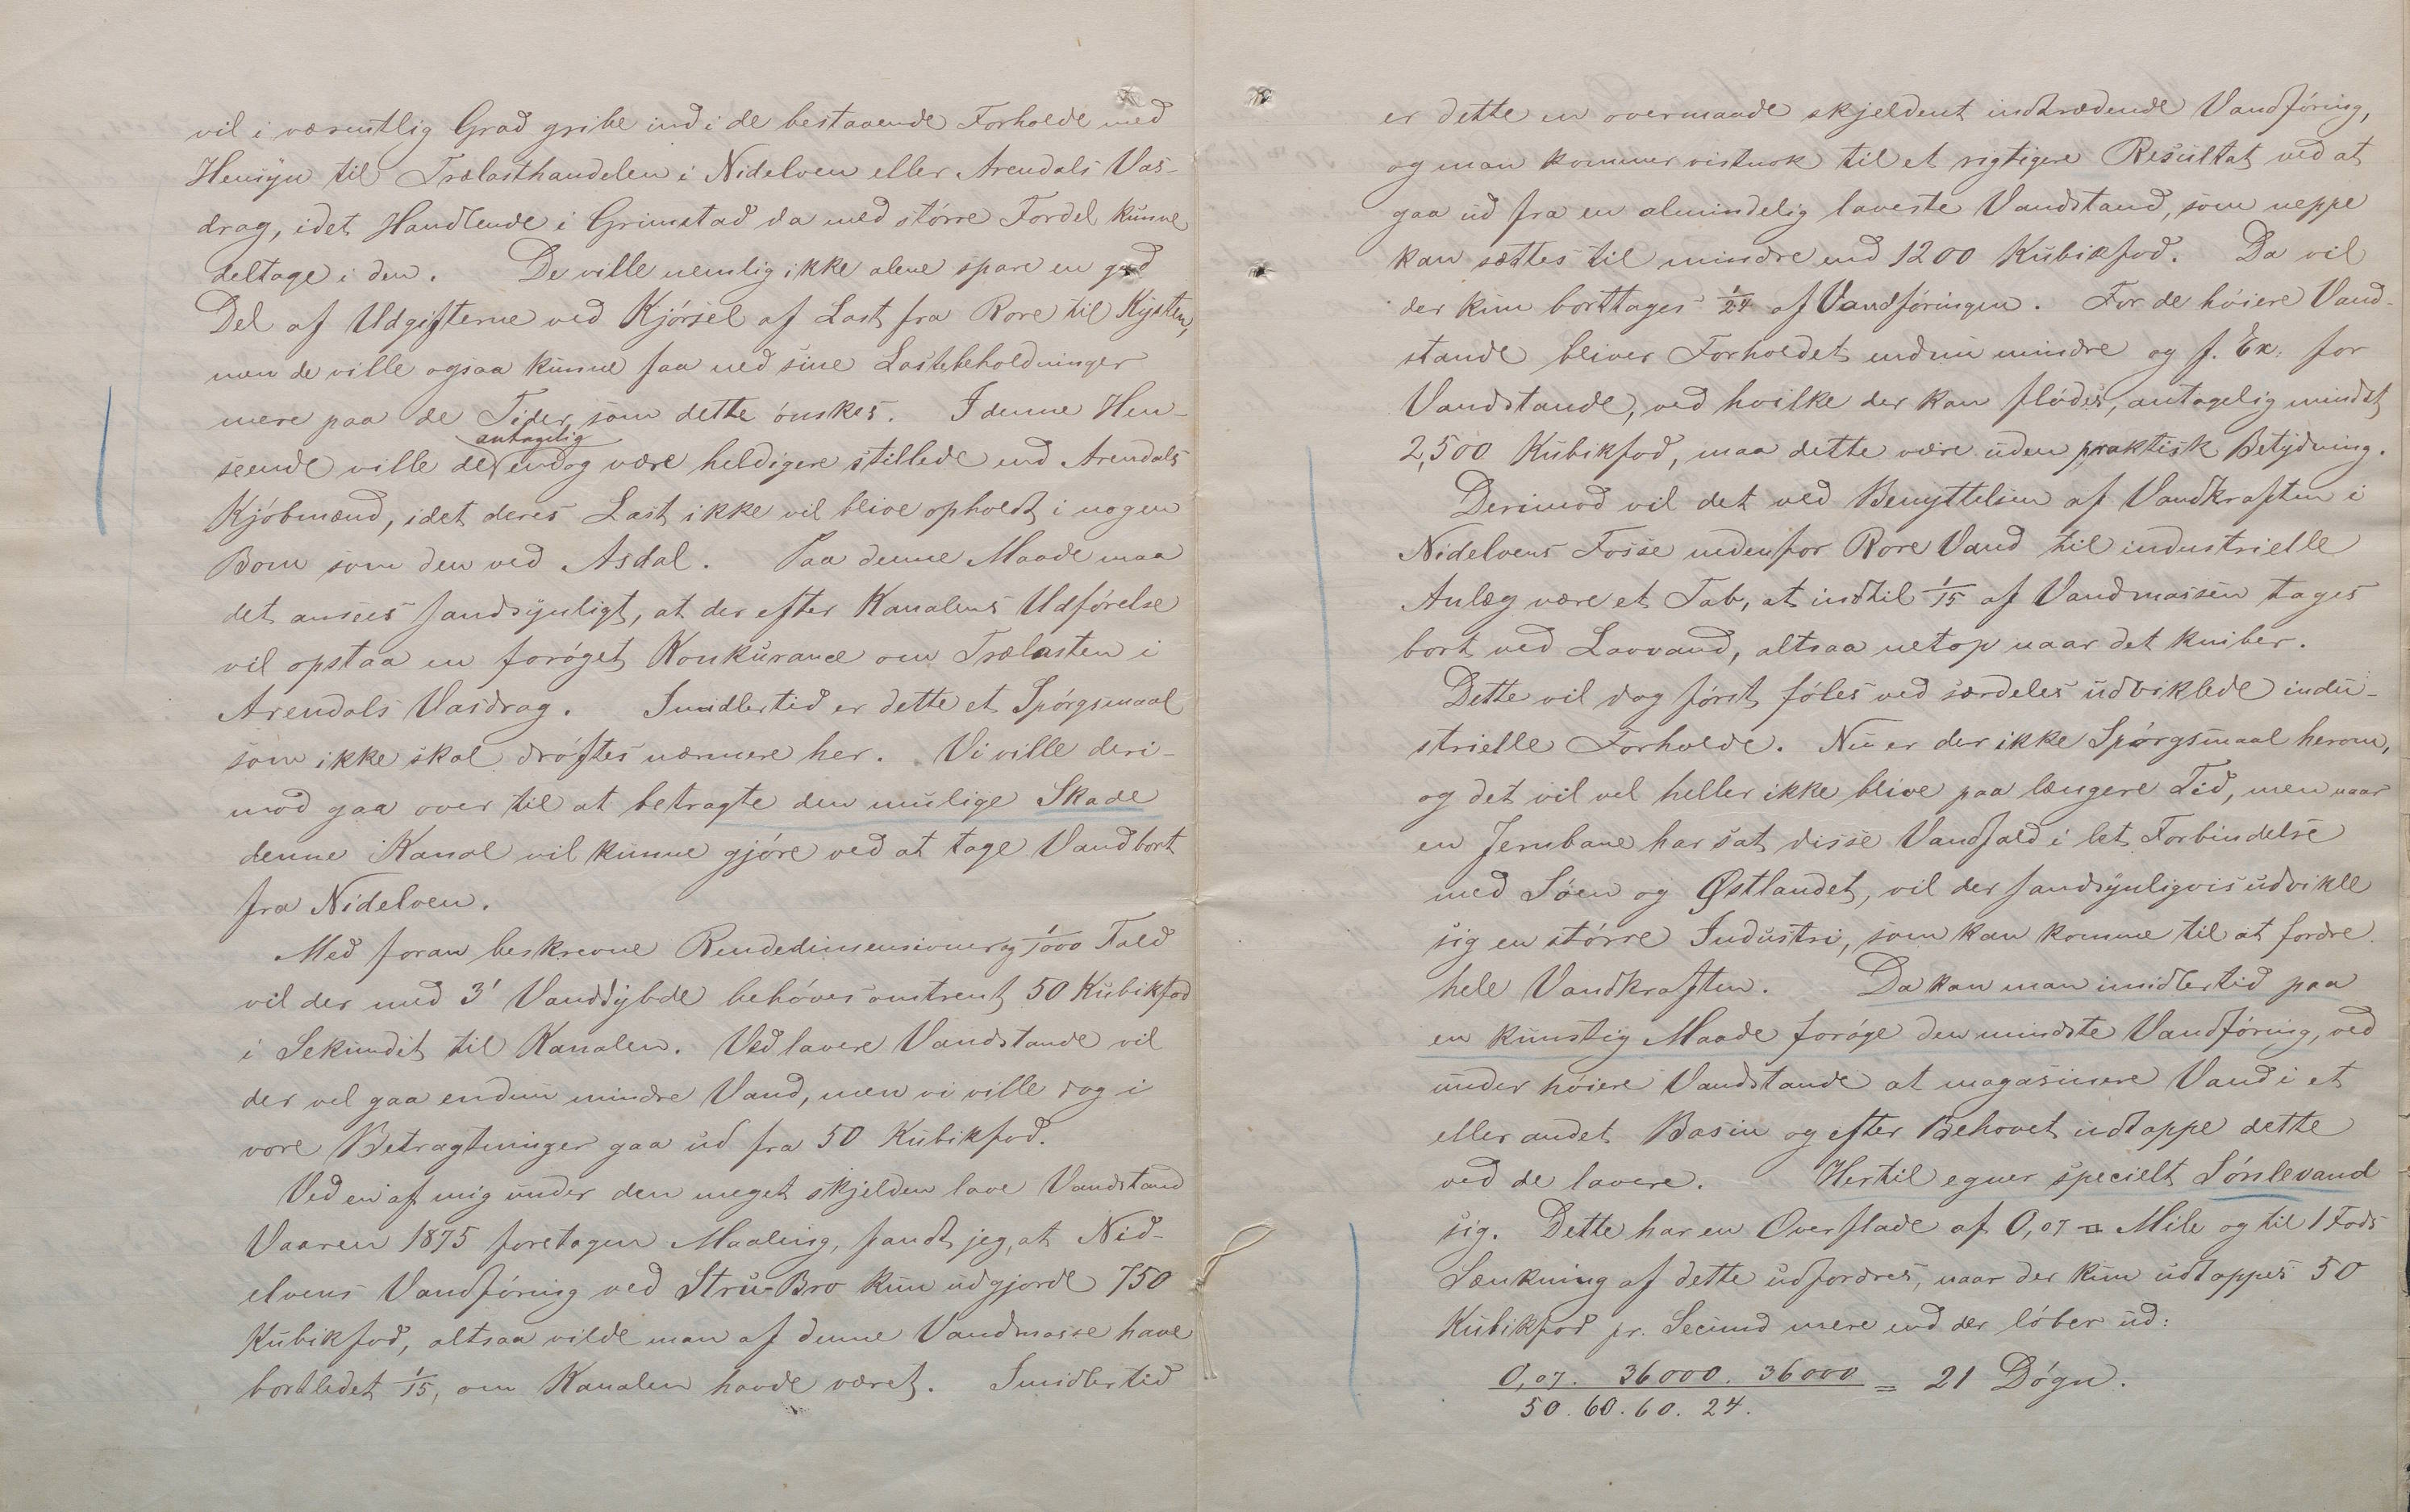 vil i væsentlig Grad gribe ind i de bestaaende Forholde med
Hensyn til Trælasthandelen i Nidelven eller Arendals Vas-
drag, idet Handlende i Grimstad da med större Fordel kunne
deltage i den. De ville nemlig ikke alene spare en god
Del af Udgifterne ved Kjörsel af Last fra Rore til Kysten,
men de ville ogsaa kunne faa ned sine Lastebeholdninger
mere paa de Tider, som dette önskes. I denne Hen-
antagelig
seende ville de endog være heldigere stillede end Arendals
Kjöbmænd, idet deres Last ikke vil blive opholdt i nogen
Bom som den ved Asdal. Paa denne Maade maa
det ansees sandsynligt, at der efter Kanalens Udförelse
vil opstaa en foröget Konkurance om Trælasten i
Arendals Vasdrag. Imidlertid er dette et Spörgsmaal
som ikke skal dröftes nærmere her. Vi ville deri-
mod gaa over til at betragte den mulige Skade
denne Kanal vil kunne gjöre ved at tage Vand bort
fra Nidelven.
Med foran beskrevne Rendedimensioner og 1/1000 Fald
vil der med 3' Vanddybde behöves omtrent 50 Kubikfod
i Sekundet til Kanalen. Ved lavere Vandstande vil
der vel gaa endnu mindre Vand, men vi ville dog i
vore Betragtninger gaa ud fra 50 Kubikfod.
Ved en af mig under den meget skjelden lave Vandstand
Vaaren 1875 foretagen Maaling, fandt jeg, at Nid-
elvens Vandföring ved Stru-Bro kun udgjorde 750
Kubikfod, altsaa vilde man af denne Vandmasse have
bortledet 1/15, om Kanalen havde været. Imidlertid
er dette en overmaade skjeldent indtrædende Vandföring,
og man kommer vistnok til et rigtigere Resultat ved at
gaa ud fra en almindelig laveste Vandstand, som neppe
kan sættes til mindre end 1200 Kubikfod. Da vil
der kun borttages 1/24 af Vandföringen. For de höiere Vand-
stande bliver Forholdet endnu mindre og f. Ex. for
Vandstande, ved hvilke der kan flödes, antagelig mindst
2,500 Kubikfod, maa dette være uden praktisk Betydning.
Derimod vil det ved Benyttelsen af Vandkraften i
Nidelvens Fosse nedenfor Rore Vand til industrielle
Anlæg være et Tab, at indtil 1/15 af Vandmassen tages
bort ved Lavvand, altsaa netop naar det kniber.
Dette vil dog först föles ved særdeles udviklede indu-
strielle Forholde. Nu er der ikke Spörgsmaal herom,
og det vil vel heller ikke blive paa længere Tid, men naar
en Jernbane har sat disse Vandfald i let Forbindelse
med Söen og Østlandet, vil der sandsynligvis udvikle
sig en större Industri, som kan komme til at fordre
hele Vandkraften. Da kan man imidlertid paa
en kunstig Maade foröge den mindste Vandföring, ved
under höiere Vandstande at magasinere Vand i et
eller andet Basin og efter Behovet udtappe dette
ved de lavere. Hertil egner specielt Sörslevand
sig. Dette har en Overflade af 0,07 □ Mile og til 1 Fods
Sænkning af dette udfordres, naar der kun udtappes 50
Kubikfod pr. Secund mere end der löber ud:
0,07. 36000. 36000 = 21 Dögn.
50. 60. 60. 24.